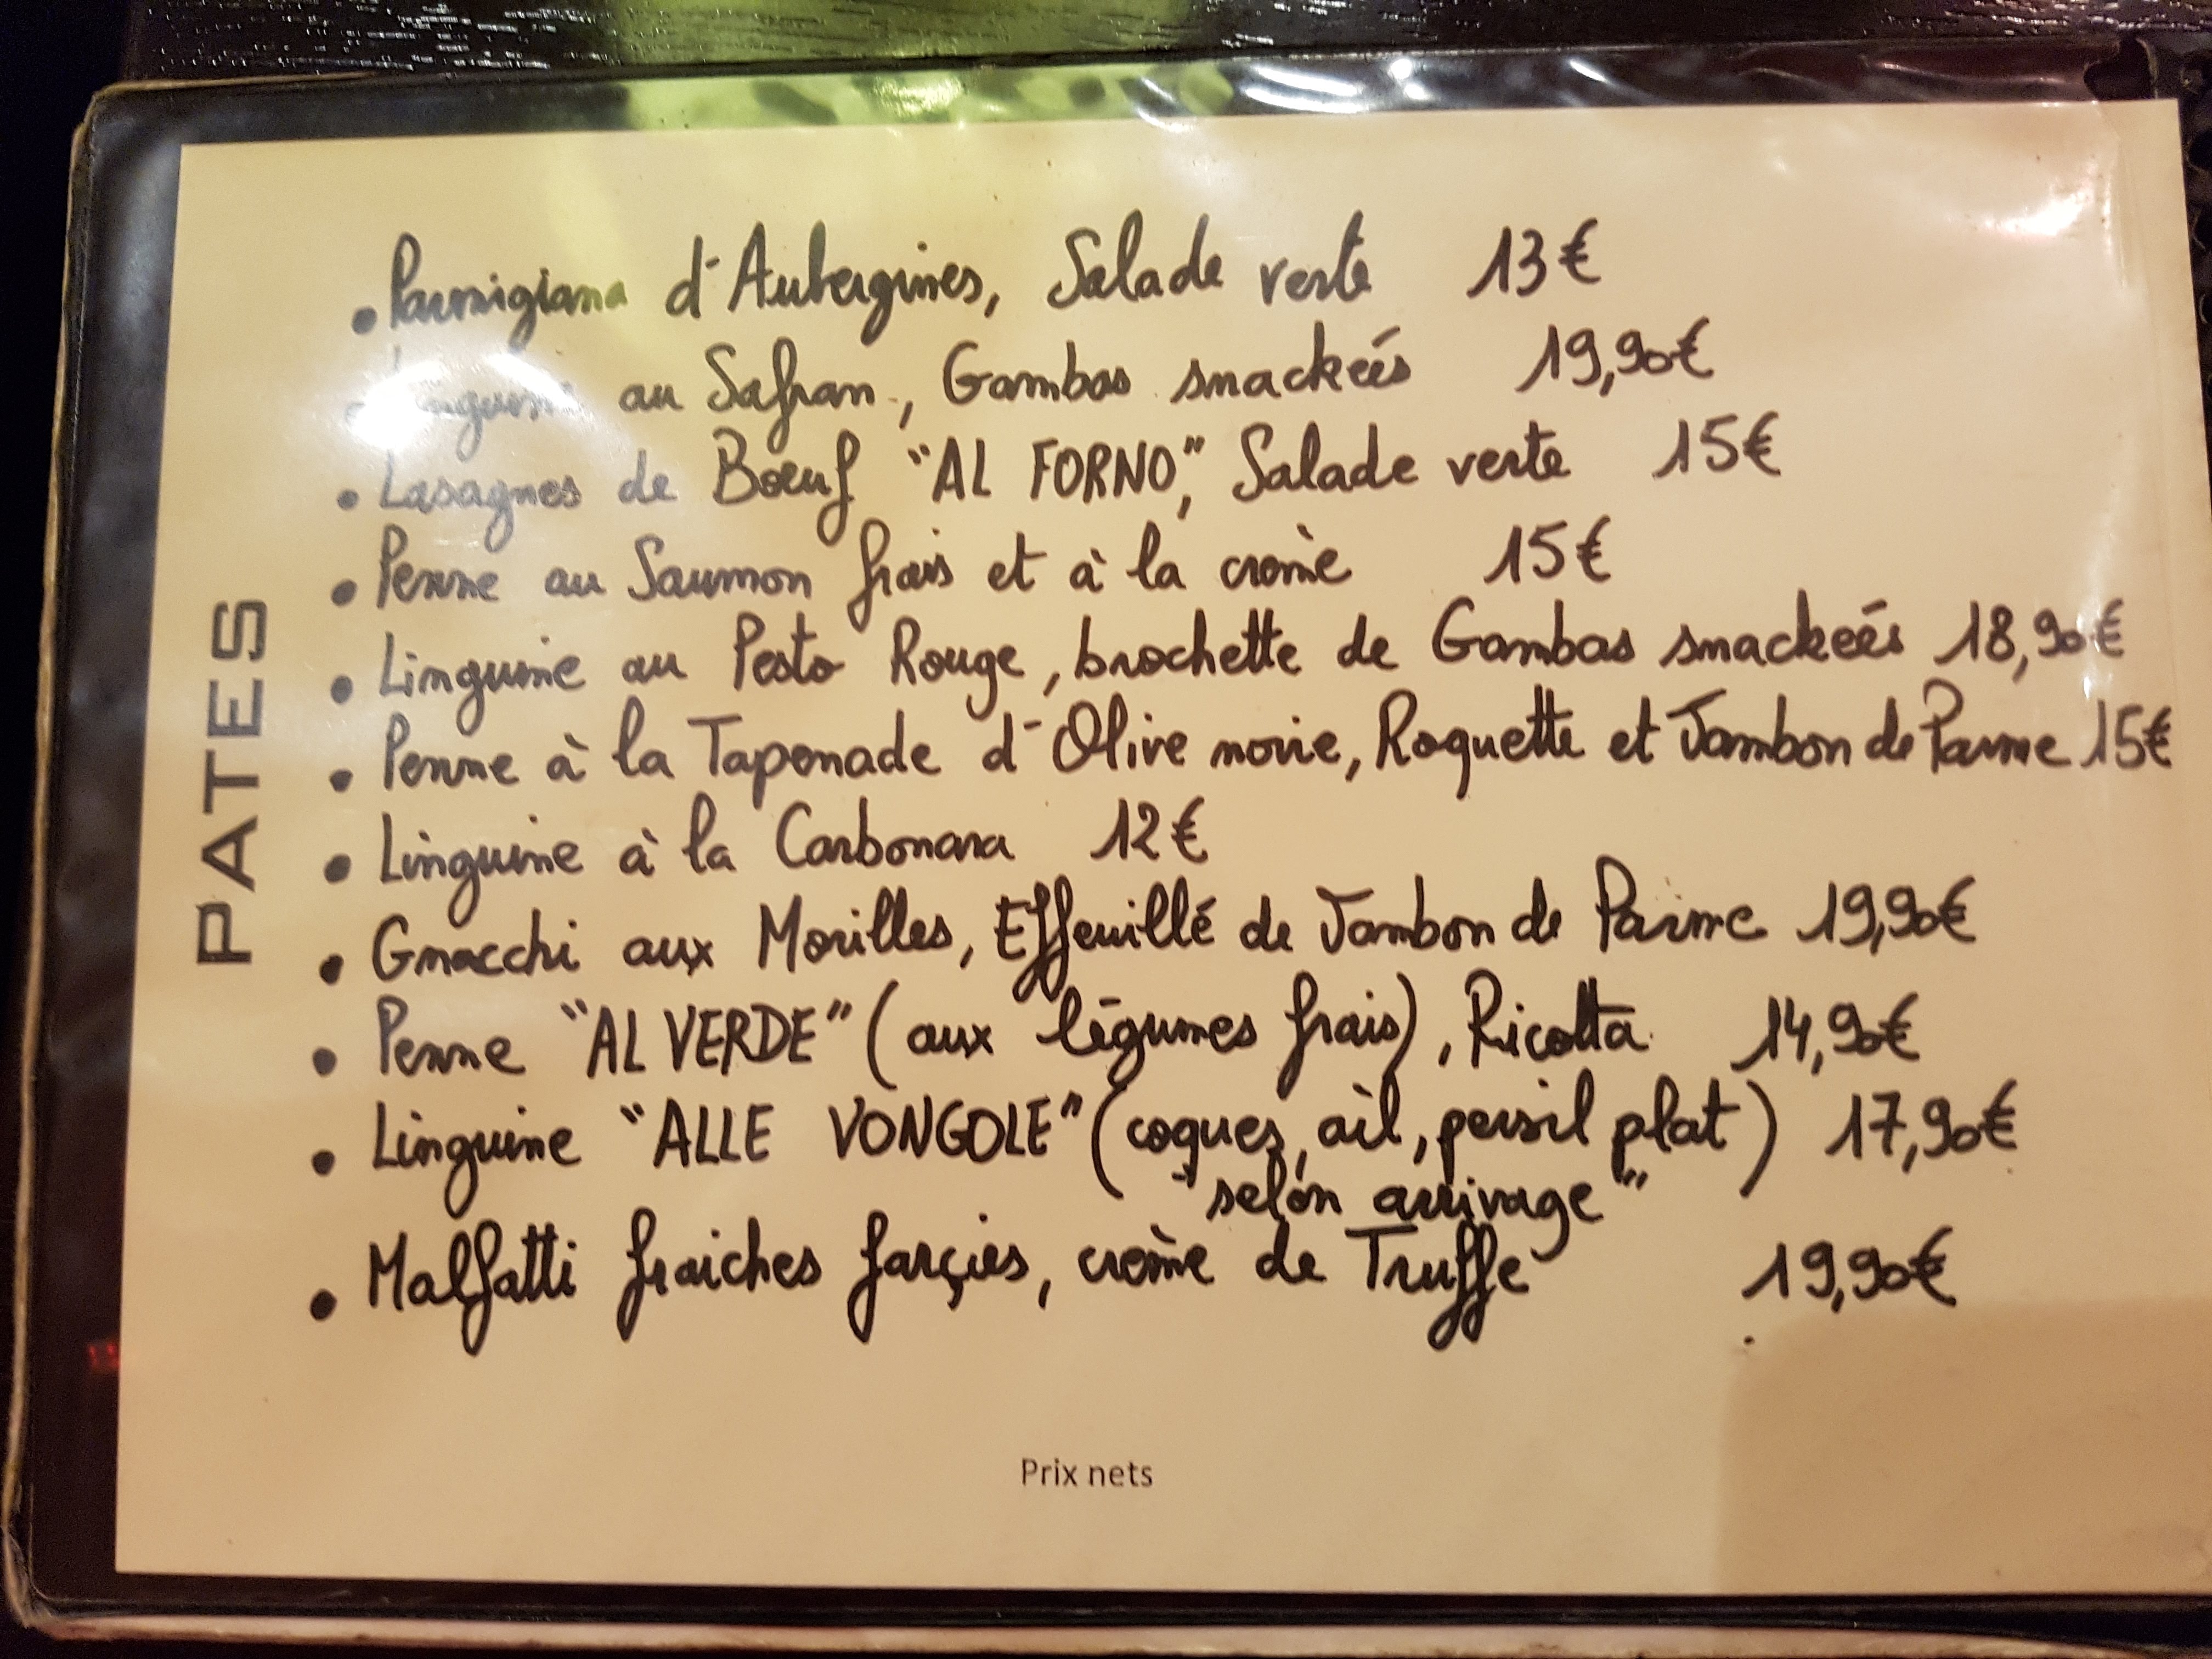 PATES
• Parmigiana d'Aubergines, Salade verte 13€
• Linguine au Safran, Gambas snackeés 19,90€
• Lasagnes de Bœuf "AL FORNO", Salade verte 15€
• Penne au Saumon frais et à la crème 15€
• Linguine au Pesto Rouge, brochette de Gambas snackeés 18,90€
• Penne à la Taponade d'Olive noire, Roquette et Jambon de Parme 15€
• Linguine à la Carbonara 12€
• Gnocchi aux Morilles, Effeuillé de Jambon de Parme 19,90€
• Penne "AL VERDE" (aux légumes frais), Ricotta 14,90€
• Linguine "ALLE VONGOLE" (coques, ail, persil plat) 17,90€
"selon arrivage"
• Malfatti fraiches farçies, crème de Truffe 19,90€
Prix nets